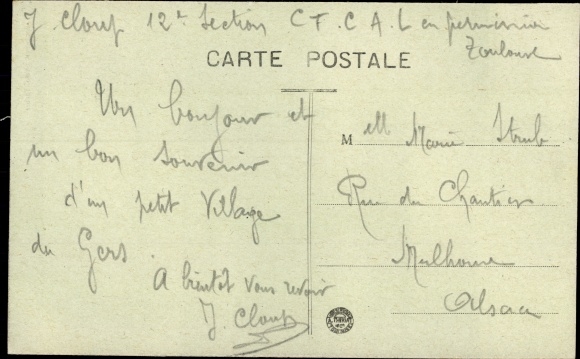 J Cloup 12e Section C T. C A. L en permission
Toulouse
CARTE POSTALE
Un bonjour et
un bon souvenir
d'un petit village
du Gers.
A bientôt vous revoir
J. Cloup
Mell Marie Strub
Rue du Chantier
Mulhouse
Alsace